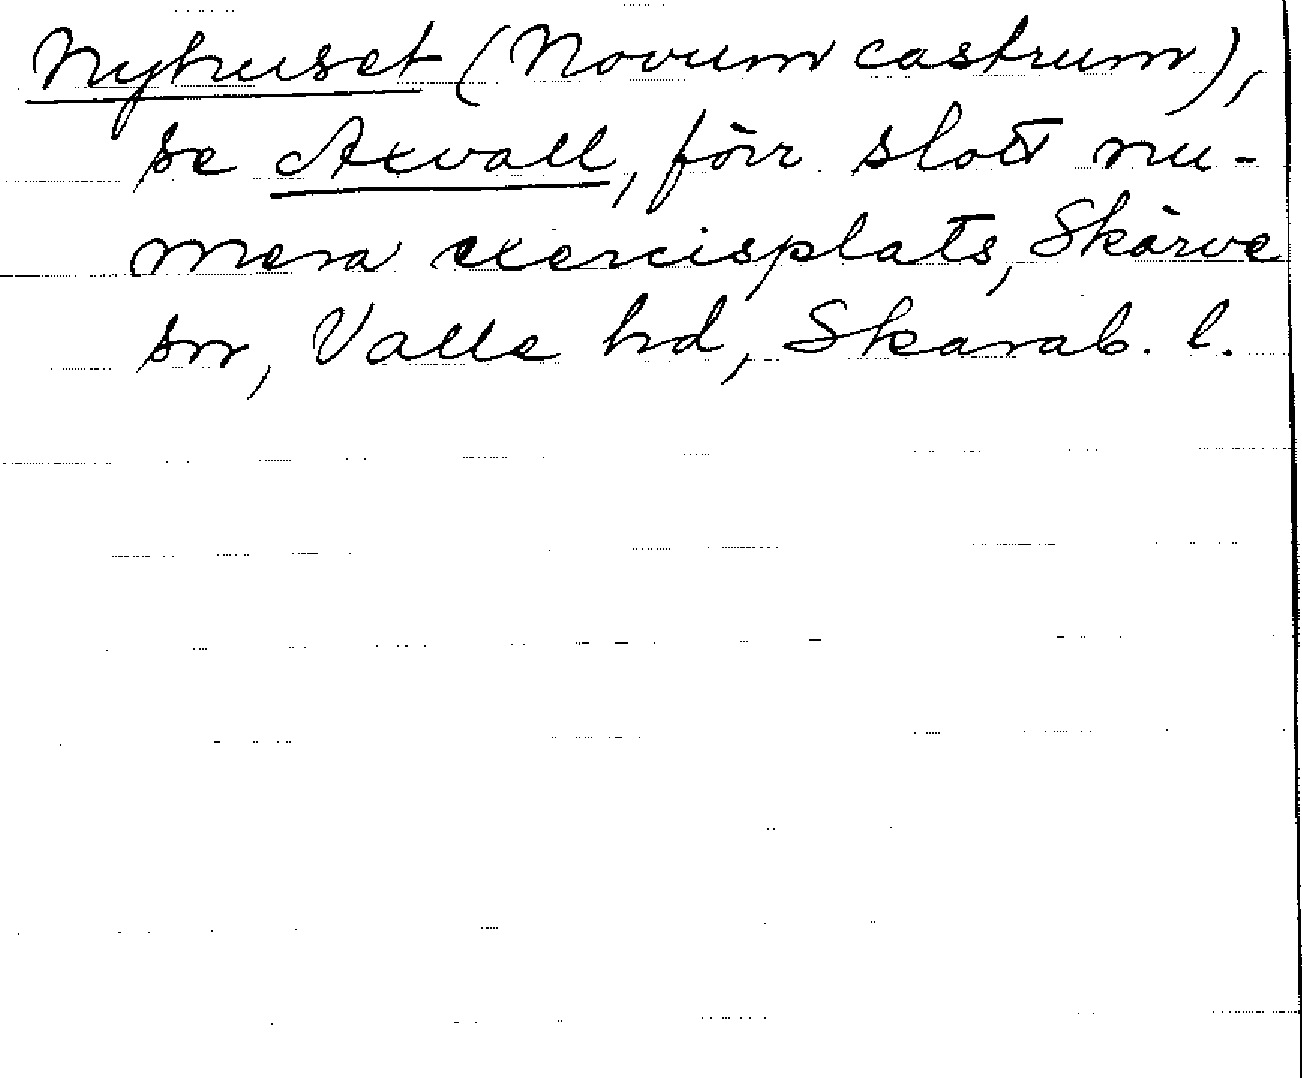 Nyhuset (Novum castrum),
se Axvall, förr slott nu-
mera exercisplats, Skärve
sn, Valle hd, Skarab. l.